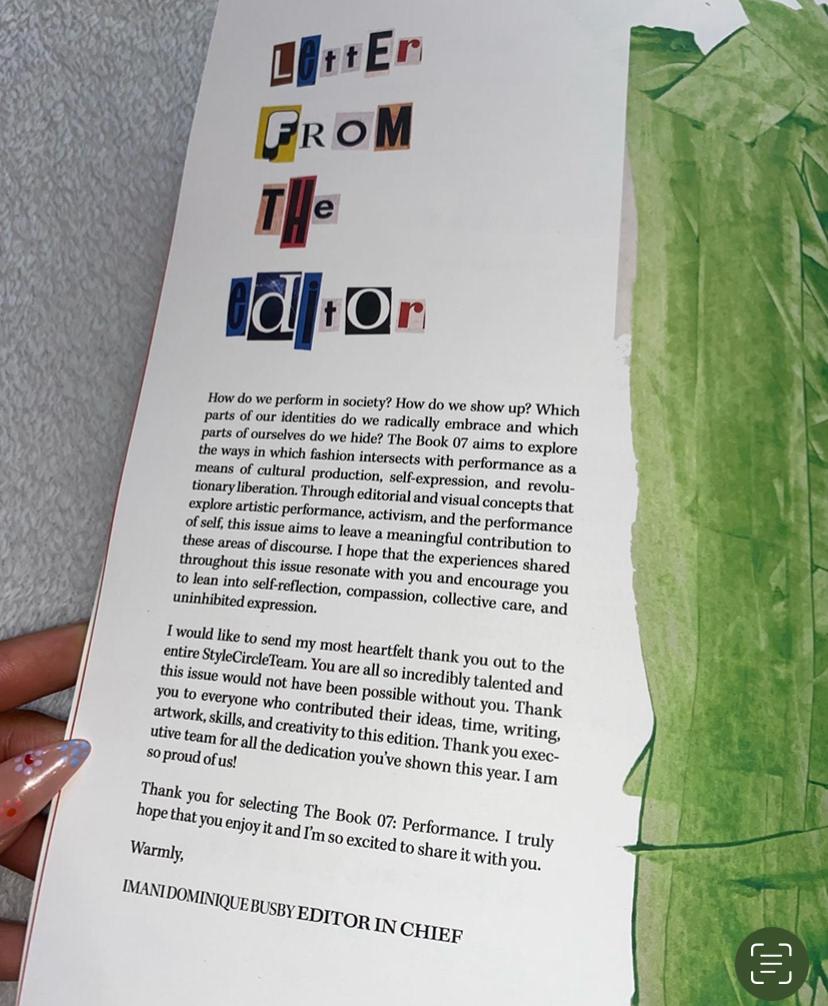 LettEr
FROM
THe
editOr
How do we perform in society? How do we show up? Which
parts of our identities do we radically embrace and which
parts of ourselves do we hide? The Book 07 aims to explore
the ways in which fashion intersects with performance as a
means of cultural production, self-expression, and revolu-
tionary liberation. Through editorial and visual concepts that
explore artistic performance, activism, and the performance
of self, this issue aims to leave a meaningful contribution to
these areas of discourse. I hope that the experiences shared
throughout this issue resonate with you and encourage you
to lean into self-reflection, compassion, collective care, and
uninhibited expression.
I would like to send my most heartfelt thank you out to the
entire StyleCircleTeam. You are all so incredibly talented and
this issue would not have been possible without you. Thank
you to everyone who contributed their ideas, time, writing,
artwork, skills, and creativity to this edition. Thank you exec-
utive team for all the dedication you've shown this year. I am
so proud of us!
Thank you for selecting The Book 07: Performance. I truly
hope that you enjoy it and I'm so excited to share it with you.
Warmly,
IMANI DOMINIQUE BUSBY EDITOR IN CHIEF